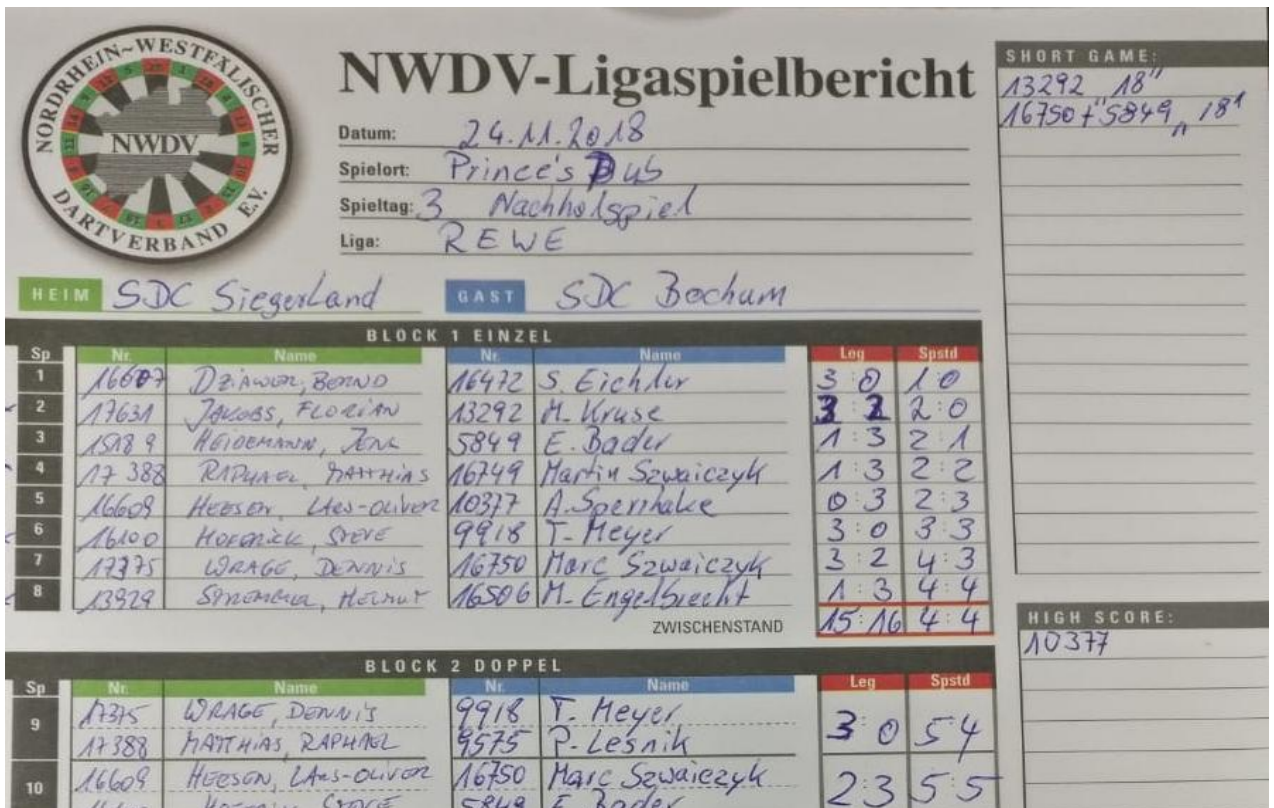 NORDRHEIN~WESTFÄLISCHER
NWDV
DARTVERBAND E.V.
NWDV-Ligaspielbericht
Datum: 24.11.2018
Spielort: Prince's Pub
Spieltag: 3 Nachholspiel
Liga: REWE
SHORT GAME:
13292 18"
16750 + 5849 18
HEIM SDC Siegerland GAST SDC Bochum
BLOCK 1 EINZEL
Sp Nr. Name Nr. Name Leg Spstd
1 16607 BERND 16472 S. Eichler 3:0 1:0
2 17631 JAKOBS, FLORIAN 13292 M. Kruse 2:0
3 15189 HEIDEMANN, 5849 E. Bader 1:3 2:1
4 17388 RAPHAEL, MATTHIAS 16749 Martin Szwaiczyk 1:3 2:2
5 16609 HEESEN, LARS-OLIVER 10377 A. Spernhake 0:3 2:3
6 16100 STEVE 9918 T. Meyer 3:0 3:3
7 17375 WRAGE, DENNIS 16750 Marc Szwaiczyk 3:2 4:3
8 13929 HELMUT 16506 M. Engelbrecht 1:3 4:4
ZWISCHENSTAND 15:16 4:4
HIGH SCORE:
10377
BLOCK 2 DOPPEL
Sp Nr. Name Nr. Name Leg Spstd
9 17375 WRAGE, DENNIS 9918 T. Meyer 3:0 5:4
17388 MATTHIAS, RAPHAEL 9575 P. Lesnik
10 16609 HEESEN, LARS-OLIVER 16750 Marc Szwaiczyk 2:3 5:5
STEVE 5849 E. Bader